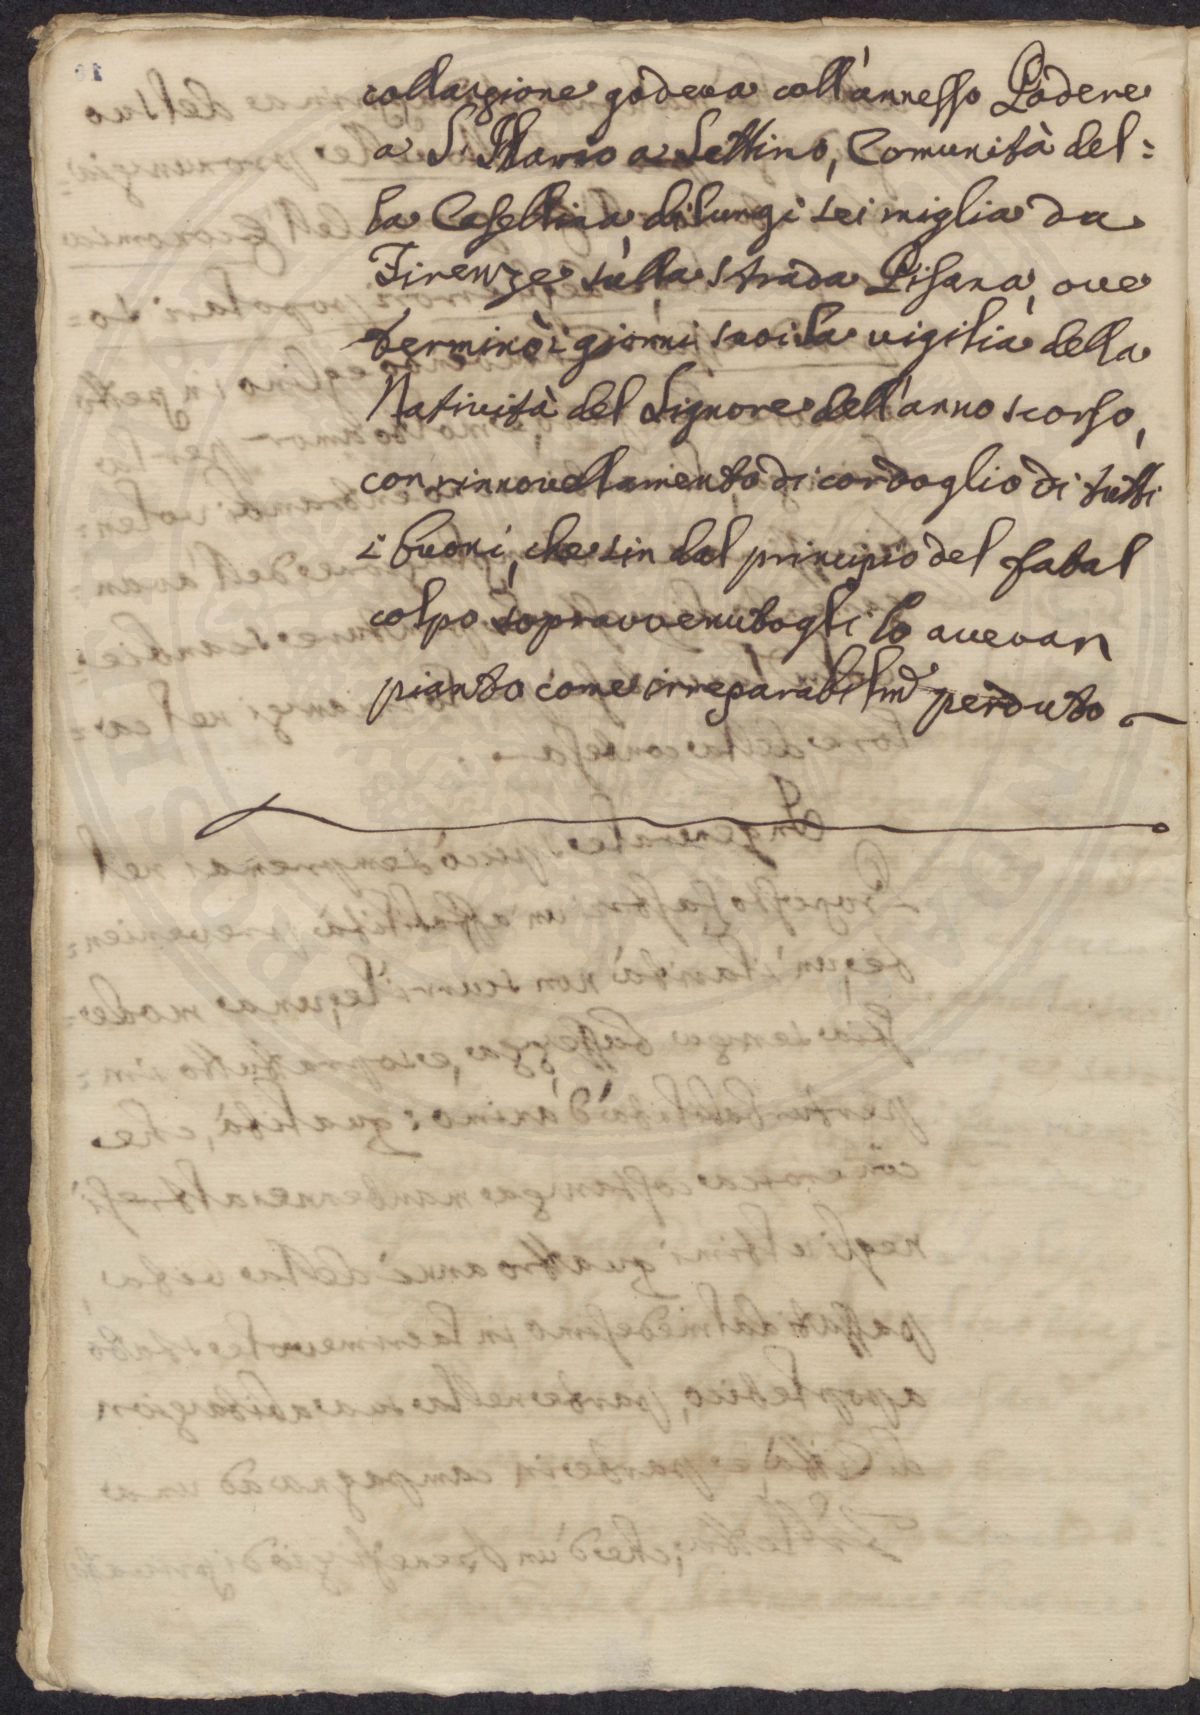 collazione godeva coll'annesso Podere
a S. Ilario a Settimo, Comunità del=
la Casellina, dilungi sei miglia da
Firenze sulla strada Pisana, ove
terminò i giorni suoi la vigilia della
Natività del Signore dell'anno scorso,
con rinnovellamento di cordoglio di tutti
i buoni, che sin dal principio del fatal
colpo sopravvenutogli lo avevan
pianto come irreparabilmẽ perduto